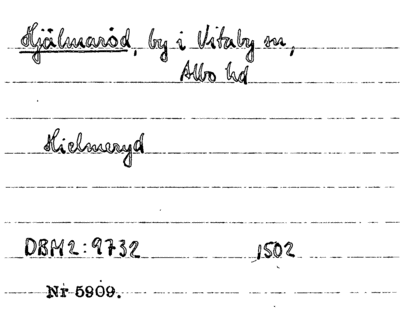 Hjälmaröd, by i Vitaby sn,
Albo hd
Hielmeryd
DBM2:9732 1502
Nr 5909.